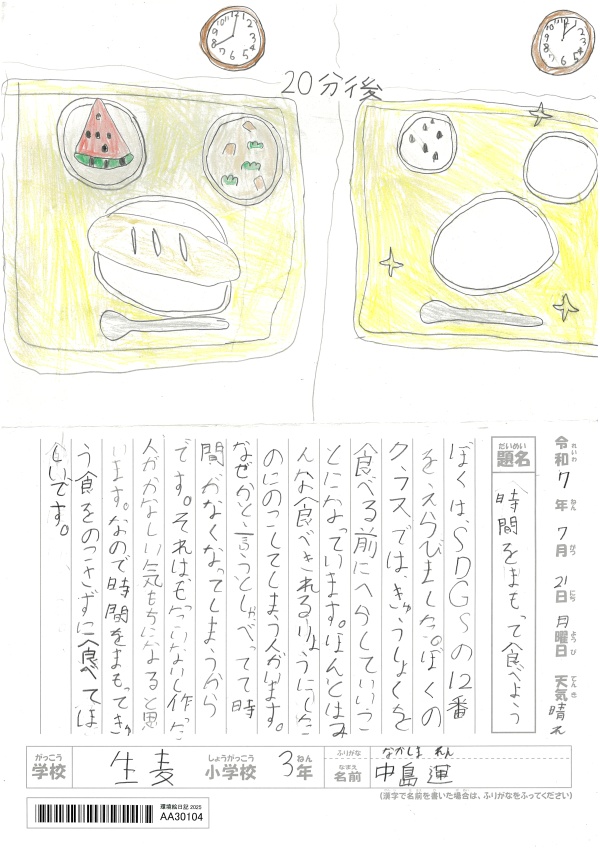 20分後
令和7年7月21日月曜日 天気 晴れ
れいわ ねん がつ にち ようび てんき
だいめい
題名
時間をまもって食べよう
ぼくは、SDGsの12番
をえらびました。ぼくの
クラスでは、きゅうしょくを
食べる前にへらしていいこ
とになっています。ほんとはみ
んな食べきれるりょうにした
のにのこしてしまう人がいます。
なぜかと言うとしゃべってて時
間がなくなってしまうから
です。それはもったいないし作った
人がかなしい気もちになると思
います。なので時間をまもってきゅ
う食をのこさずに食べてほ
しいです。
がっこう
学校
生麦
しょうがっこう
小学校
3年
ねん
ふりがな
なかしま れん
なまえ
名前
中島 蓮
(漢字で名前を書いた場合は、ふりがなをふってください)
環境絵日記2025
AA30104